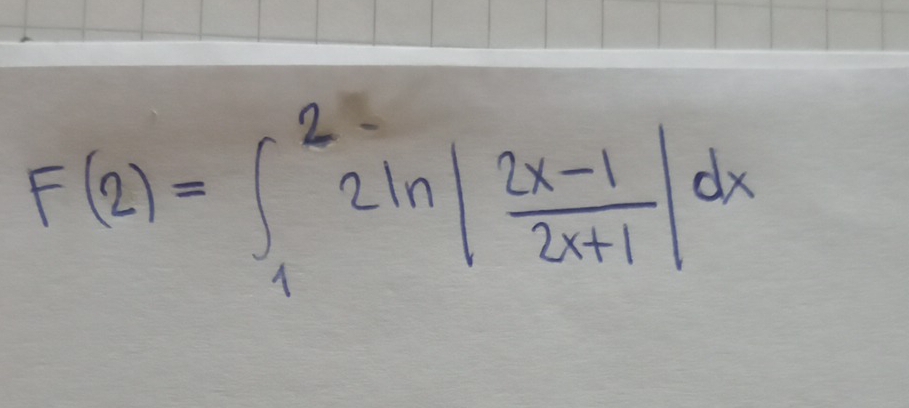 F(2) = ∫₁² 2ln|(2x-1)/(2x+1)| dx